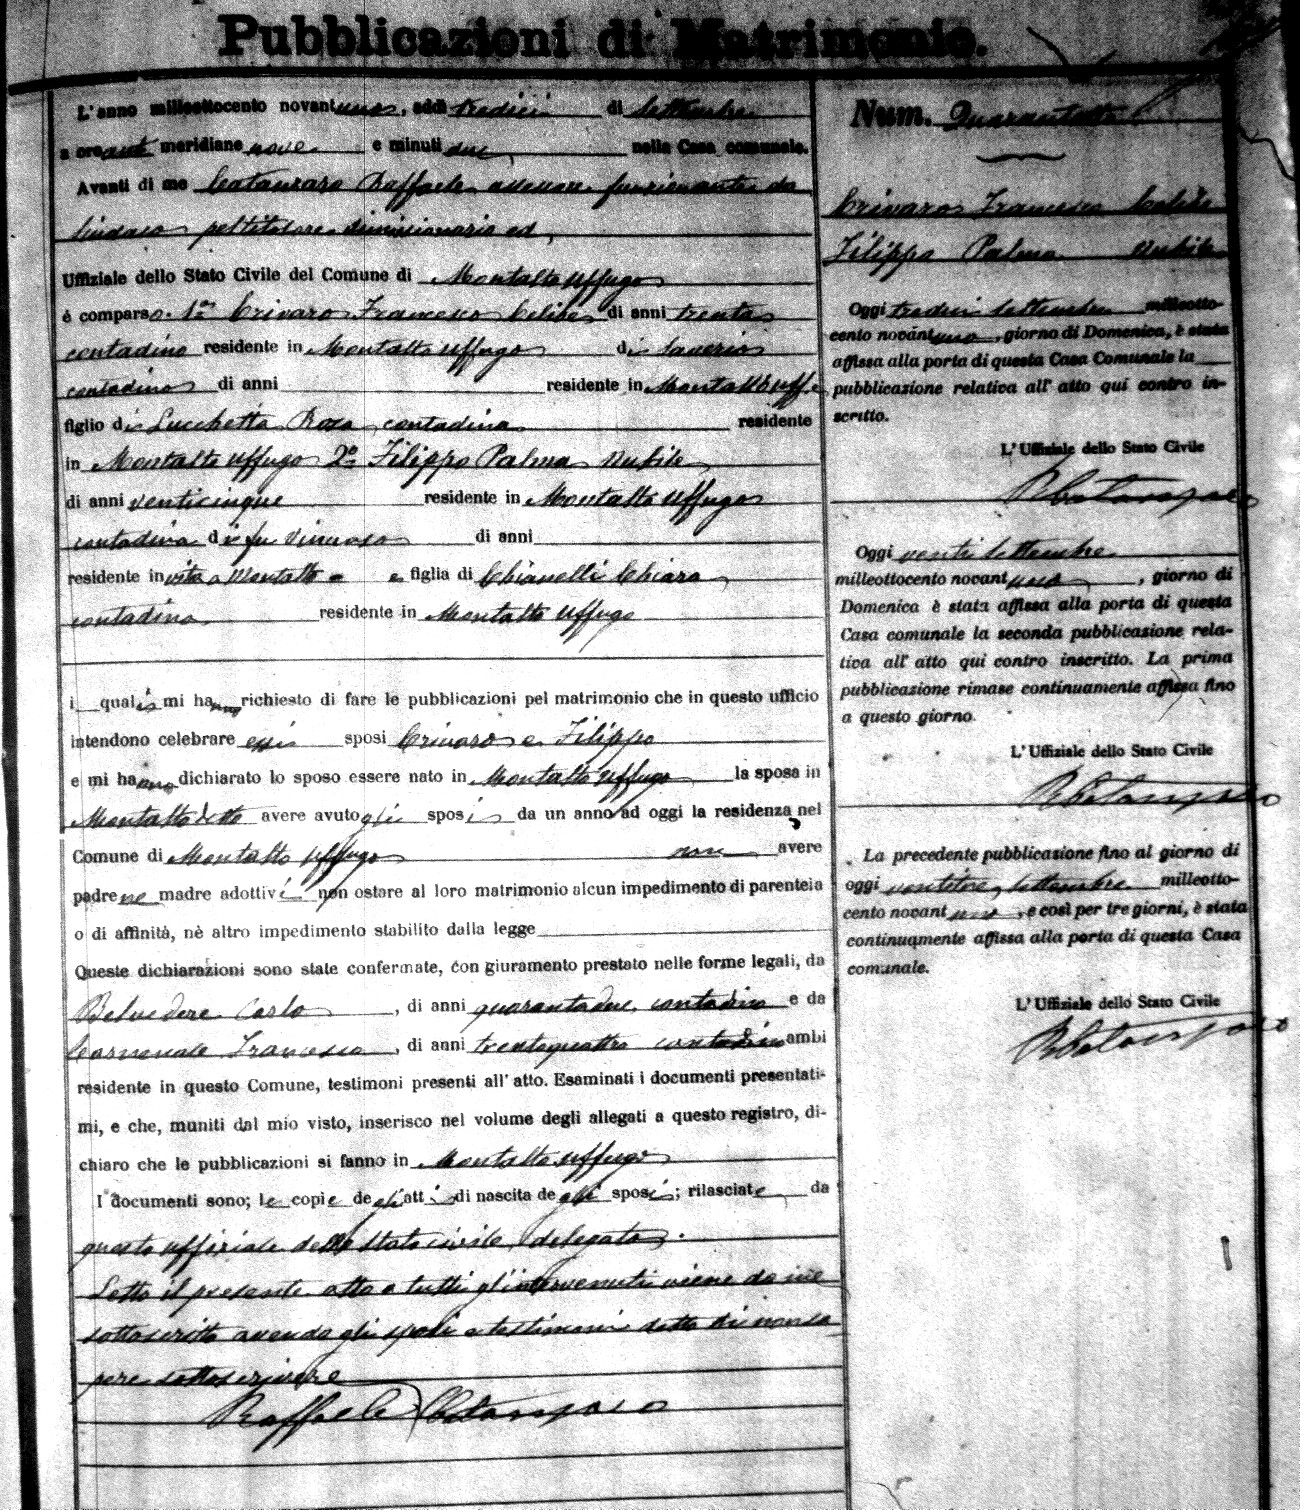 Pubblicazioni di Matrimonio.
L'anno milleottocento novantuno, addì tredici di Settembre
a ore ant meridiane nove e minuti due, nella Casa comunale.
Avanti di me Catanzaro Raffaele assessore funzionante da
Sindaco pel titolare dimissionario ed,
Uffiziale dello Stato Civile del Comune di Montalto Uffugo
è comparso. 1º Crivaro Francesco celibe di anni trenta
contadino residente in Montalto Uffugo di Saverio
contadino di anni residente in Montalto Uff.
figlio di Lucchetta Rosa contadina residente
in Montalto Uffugo 2º Filippo Palma nubile
di anni venticinque residente in Montalto Uffugo
contadina di fu di anni
residente in vita a Montalto e figlia di Chianelli Chiara
contadina residente in Montalto Uffugo
i quali mi hanno richiesto di fare le pubblicazioni pel matrimonio che in questo ufficio
intendono celebrare essi sposi Crivaro e Filippo
e mi hanno dichiarato lo sposo essere nato in Montalto Uffugo la sposa in
Montalto detto avere avuto gli sposi da un anno ad oggi la residenza nel
Comune di Montalto Uffugo non avere
padre ne madre adottivi non ostare al loro matrimonio alcun impedimento di parentela
o di affinità, nè altro impedimento stabilito dalla legge
Queste dichiarazioni sono state confermate, con giuramento prestato nelle forme legali, da
Belvedere Carlo, di anni quarantadue, contadino e da
Carnevale Francesco, di anni trentaquattro contadino ambi
residente in questo Comune, testimoni presenti all' atto. Esaminati i documenti presentati-
mi, e che, muniti dal mio visto, inserisco nel volume degli allegati a questo registro, di-
chiaro che le pubblicazioni si fanno in Montalto Uffugo
I documenti sono; le copie degli atti di nascita degli sposi; rilasciate da
questo uffiziale dello stato civile delegato.
Letto il presente atto a tutti gl'intervenuti viene da me
sottoscritto avendo gli sposi e testimoni detto di non sa
pere sottoscrivere
Raffaele Catanzaro
Num. Quarantotto
Crivaro Francesco Celibe
Filippo Palma nubile
Oggi tredici Settembre milleotto-
cento novantuno, giorno di Domenica, è stata
affissa alla porta di questa Casa Comunale la
pubblicazione relativa all' atto qui contro in-
scritto.
L' Uffiziale dello Stato Civile
R Catanzaro
Oggi venti Settembre
milleottocento novantuno, giorno di
Domenica è stata affissa alla porta di questa
Casa comunale la seconda pubblicazione rela-
tiva all' atto qui contro inscritto. La prima
pubblicazione rimase continuamente affissa fino
a questo giorno.
L' Uffiziale dello Stato Civile
R Catanzaro
La precedente pubblicazione fino al giorno di
oggi ventitre, Settembre milleotto-
cento novantuno, e così per tre giorni, è stata
continuamente affissa alla porta di questa Casa
comunale.
L' Uffiziale dello Stato Civile
R Catanzaro